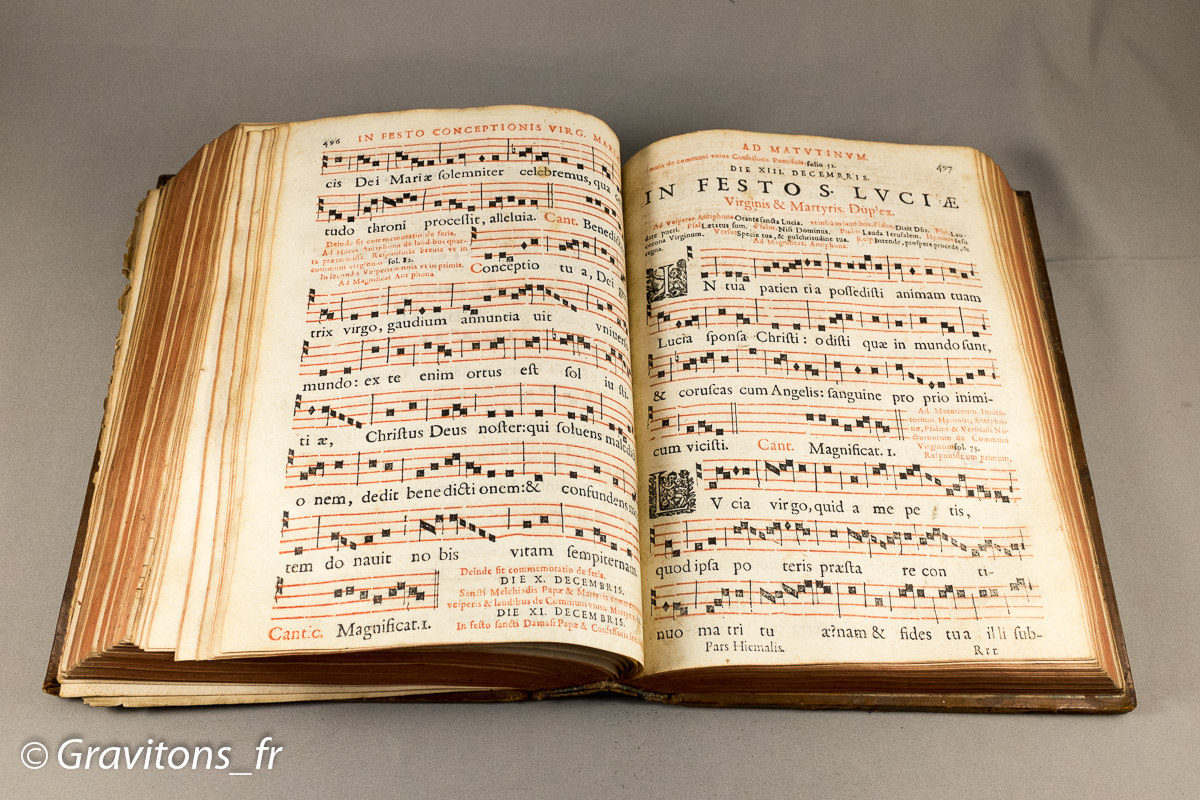 496 IN FESTO CONCEPTIONIS VIRG. MARI
cis Dei Mariæ solemniter celebremus, qua
tudo throni processit, alleluia. Cant. Benedic
Deinde fit commemoratio de feria,
Ad Horas Antiphonæ de laudibus quar-
ta prætermissa. Responsoria brevia vt in
communi virginum fol. 82.
In secundis Vesperis omnia vt in primis.
Ad Magnificat Antiphona.
Conceptio tu a, Dei ge
trix virgo, gaudium annuntia uit vniuers
mundo: ex te enim ortus est sol iu sti
ti æ, Christus Deus noster: qui soluens maledi
o nem, dedit bene dicti onem: & confundens mo
tem do nauit no bis vitam sempiternam.
Deinde fit commemoratio de feria.
DIE X. DECEMBRIS.
Sancti Melchiadis Papæ & Martyris
vesperis & laudibus de Communi vnius Martyris
DIE XI. DECEMBRIS.
Cantic. Magnificat. 1. In festo sancti Damasi Papæ & Confessoris
AD MATVTINVM. 497
omnia de communi vnius Confessoris Pontificis. folio 52.
DIE XIII. DECEMBRIS.
IN FESTO S. LVCIÆ
Virginis & Martyris. Duplex.
Ad Vesperas Antiphona Orante sancta Lucia. vt infra in laudibus. Psalm. Dixit Dñs. Psal. Lau-
date pueri. Psal. Lætatus sum. Psalm. Nisi Dominus. Psalm. Lauda Ierusalem. Hymnus Iesu
corona Virginum. Versus Specie tua, & pulchritudine tua. Resp. Intende, prospere procede, &
regna. Ad Magnificat. Antiphona.
IN tua patien tia possedisti animam tuam
Lucia sponsa Christi: o disti quæ in mundo sunt,
& coruscas cum Angelis: sanguine pro prio inimi-
cum vicisti. Cant. Magnificat. 1.
Ad Matutinum Inuita-
torium Hymnus, Antipho-
næ, Psalmi & Versiculi No-
cturnorum de Communi
Virginum fol. 73.
Responsorium primum.
LV cia virgo, quid a me pe tis,
quod ipsa po teris præsta re con ti-
nuo ma tri tu æ? nam & fides tu a illi sub-
Pars Hiemalis. Rrr
© Gravitons_fr